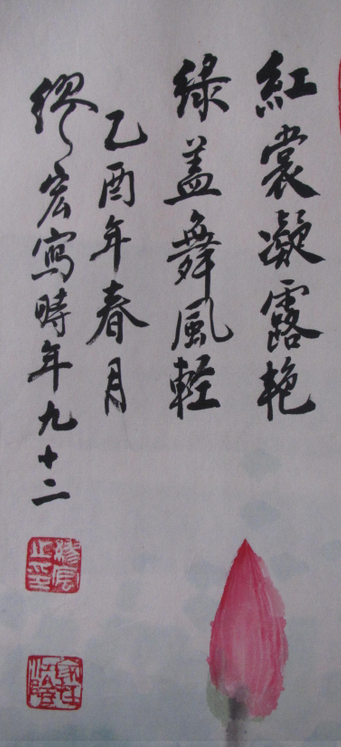 紅裳凝露艳
緑盖舞風軽
乙酉年春月
繆宏寫時年九十二